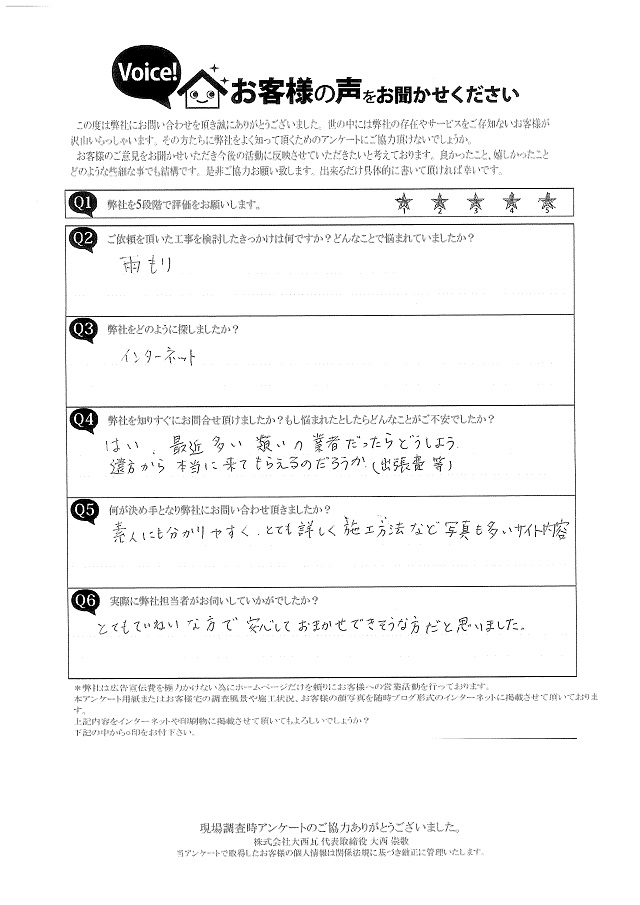 Voice! お客様の声をお聞かせください
この度は弊社にお問い合わせを頂き誠にありがとうございました。世の中には弊社の存在やサービスをご存知ないお客様が
沢山いらっしゃいます。その方たちに弊社をよく知って頂くためのアンケートにご協力頂けないでしょうか。
お客様のご意見をお聞かせいただき今後の活動に反映させていただきたいと考えております。良かったこと、嬉しかったこと
どのような些細な事でも結構です。是非ご協力お願い致します。出来るだけ具体的に書いて頂ければ幸いです。
Q1 弊社を5段階で評価をお願いします。 1 2 3 4 5
Q2 ご依頼を頂いた工事を検討したきっかけは何ですか？どんなことで悩まれていましたか？
雨もり
Q3 弊社をどのように探しましたか？
インターネット
Q4 弊社を知りすぐにお問合せ頂けましたか？もし悩まれたとしたらどんなことがご不安でしたか？
はい、最近多い類いの業者だったらどうしよう
遠方から本当に来てもらえるのだろうか（出張費等）
Q5 何が決め手となり弊社にお問い合わせ頂きましたか？
素人にも分かりやすく、とても詳しく施工方法など写真も多いサイト内容
Q6 実際に弊社担当者がお伺いしていかがでしたか？
とてもていねいな方で安心しておまかせできそうな方だと思いました。
＊弊社は広告宣伝費を極力かけない為にホームページだけを頼りにお客様への営業活動を行っております。
本アンケート用紙またはお客様宅の調査風景や施工状況、お客様の顔写真を随時ブログ形式のインターネットに掲載させて頂いておりま
す。
上記内容をインターネットや印刷物に掲載させて頂いてもよろしいでしょうか？
下記の中から○印をお付下さい。
現場調査時アンケートのご協力ありがとうございました。
株式会社大西瓦 代表取締役 大西 崇敬
当アンケートで取得したお客様の個人情報は関係法規に基づき厳正に管理いたします。